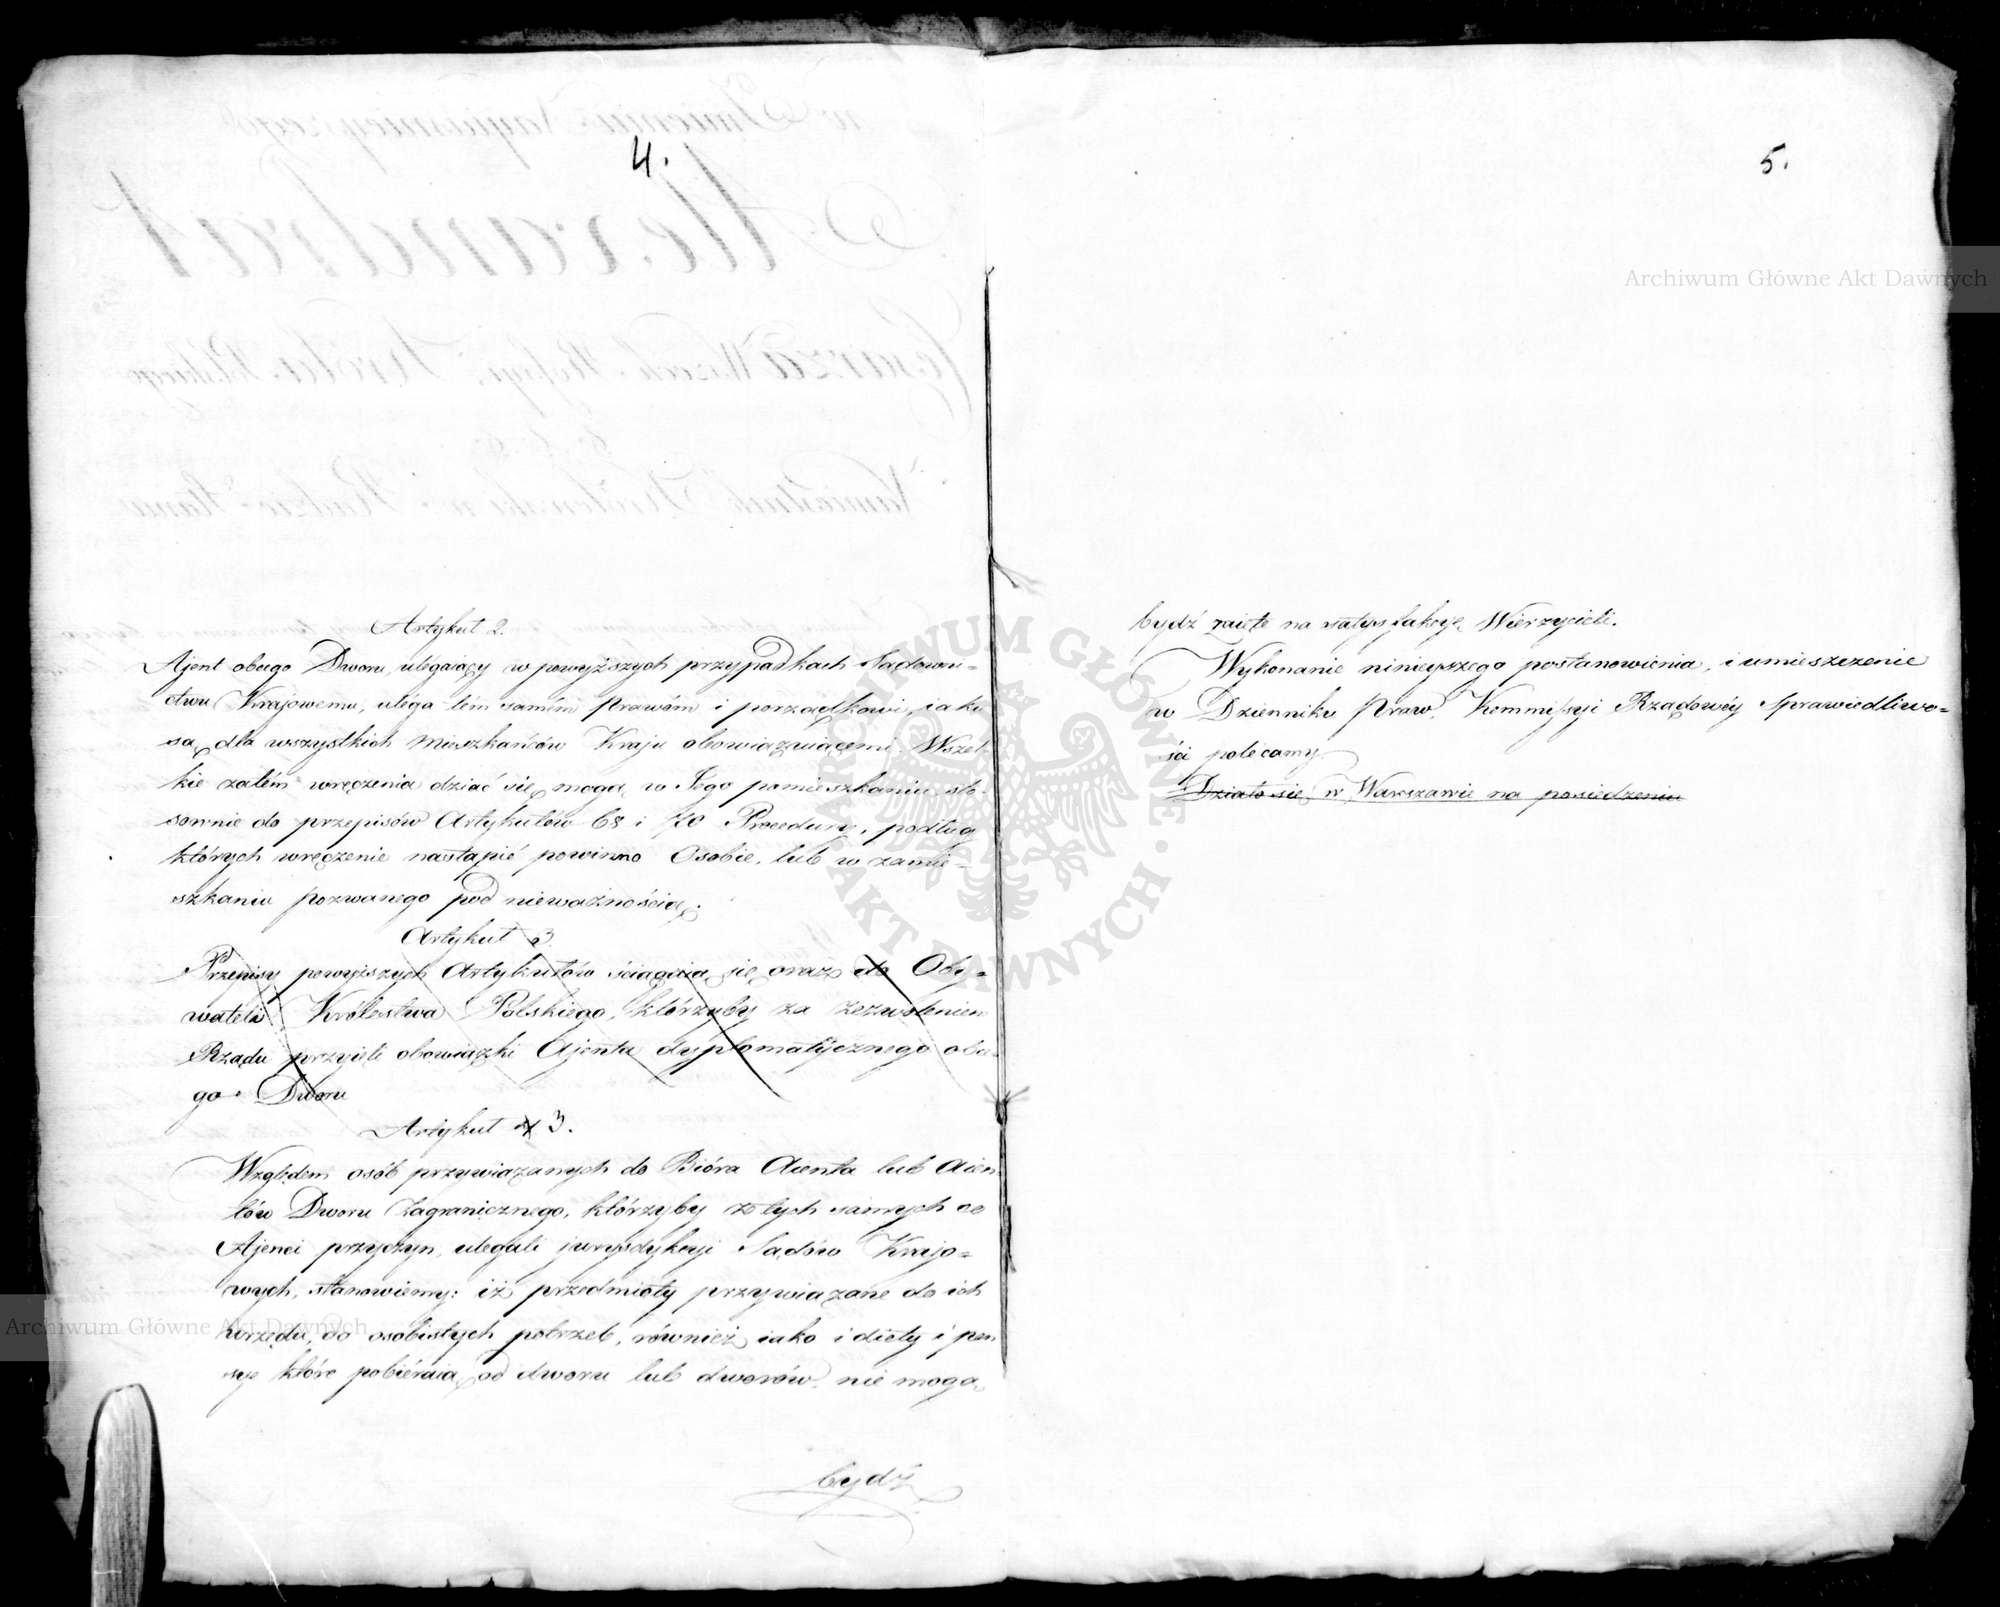 4.
Artykuł 2.
Ajent obcego Dworu, ulegaiący w powyższych przypadkach Sądowni-
ctwu Krajowemu, ulega tém samém Prawóm i porządkowi, iakie
są dla wszystkich Mieszkańców Kraju obowiązuiącemi. Wszel-
kie zatém wręczenia dziać się mogą w Jego pomieszkaniu sto-
sownie do przepisów Artykułów 68 i 70 Procedury, podług
których wręczenie nastąpić powinno Osobie, lub w zamie-
szkaniu pozwanego pod nieważnością.
Artykuł 3.
Przepisy powyższych Artykułów ściągaią się oraz do Oby-
wateli Królestwa Polskiego, którzyby za zezwoleniem
Rządu przyięli obowiązki Ajenta dyplomatycznego obce-
go Dworu
Artykuł 4 3.
Względem osób przywiązanych do Bióra Aienta lub Aien-
tów Dworu Zagranicznego, którzyby z tych samych co
Ajenci przyczyn, ulegali jurysdykcyi Sądów Krajo-
wych, stanowiemy: iż przedmioty przywiązane do ich
Urzędu, do osobistych potrzeb, również iako i diety i pen
sye które pobiéraią od dworu lub dworów, nie mogą
bydź
5.
bydź zaięte na satysfakcyę Wierzycieli.
Wykonanie ninieyszego postanowienia, i umieszczenie
w Dzienniku Praw, Kommissyi Rządowéy Sprawiedliwo-
ści polécamy.
Działo się w Warszawie na posiedzeniu
Archiwum Główne Akt Dawnych
Archiwum Główne Akt Dawnych
ARCHIWUM GŁÓWNE AKT DAWNYCH